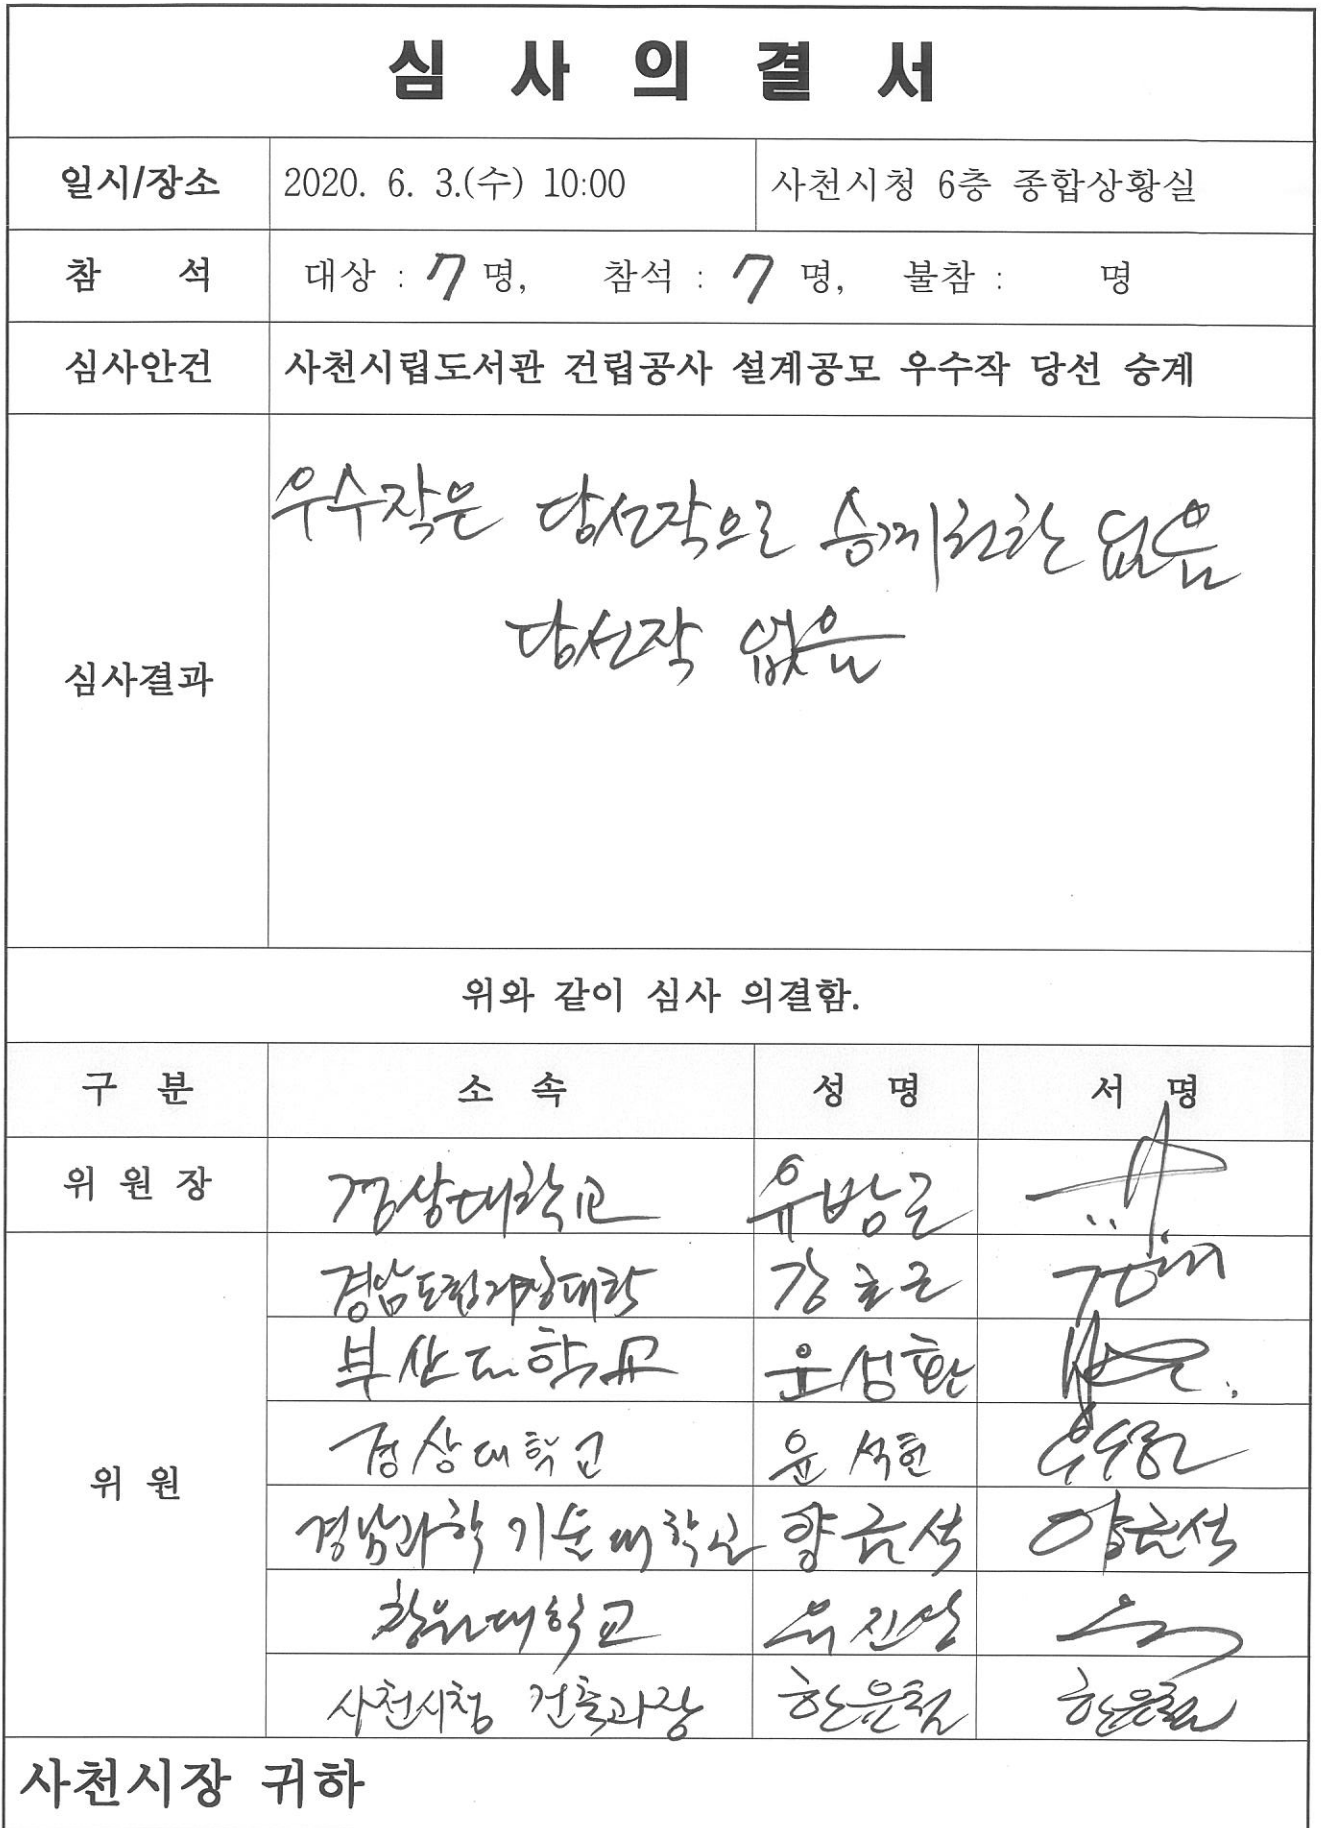 심 사 의 결 서
일시/장소 2020. 6. 3.(수) 10:00 사천시청 6층 종합상황실
참 석 대상 : 7 명, 참석 : 7 명, 불참 : 명
심사안건 사천시립도서관 건립공사 설계공모 우수작 당선 승계
우수작은 당선작으로 승계권한 없음
당선작 없음
심사결과
위와 같이 심사 의결함.
구 분 소 속 성 명 서 명
위 원 장 경상대학교 유방근
경남도립거창대학 강호근
부산대학교 윤성환
경상대학교 윤석헌
위 원
경남과학기술대학교 양금석 양금석
창원대학교 유진상
사천시청 건축과장 한윤철 한윤철
사천시장 귀하